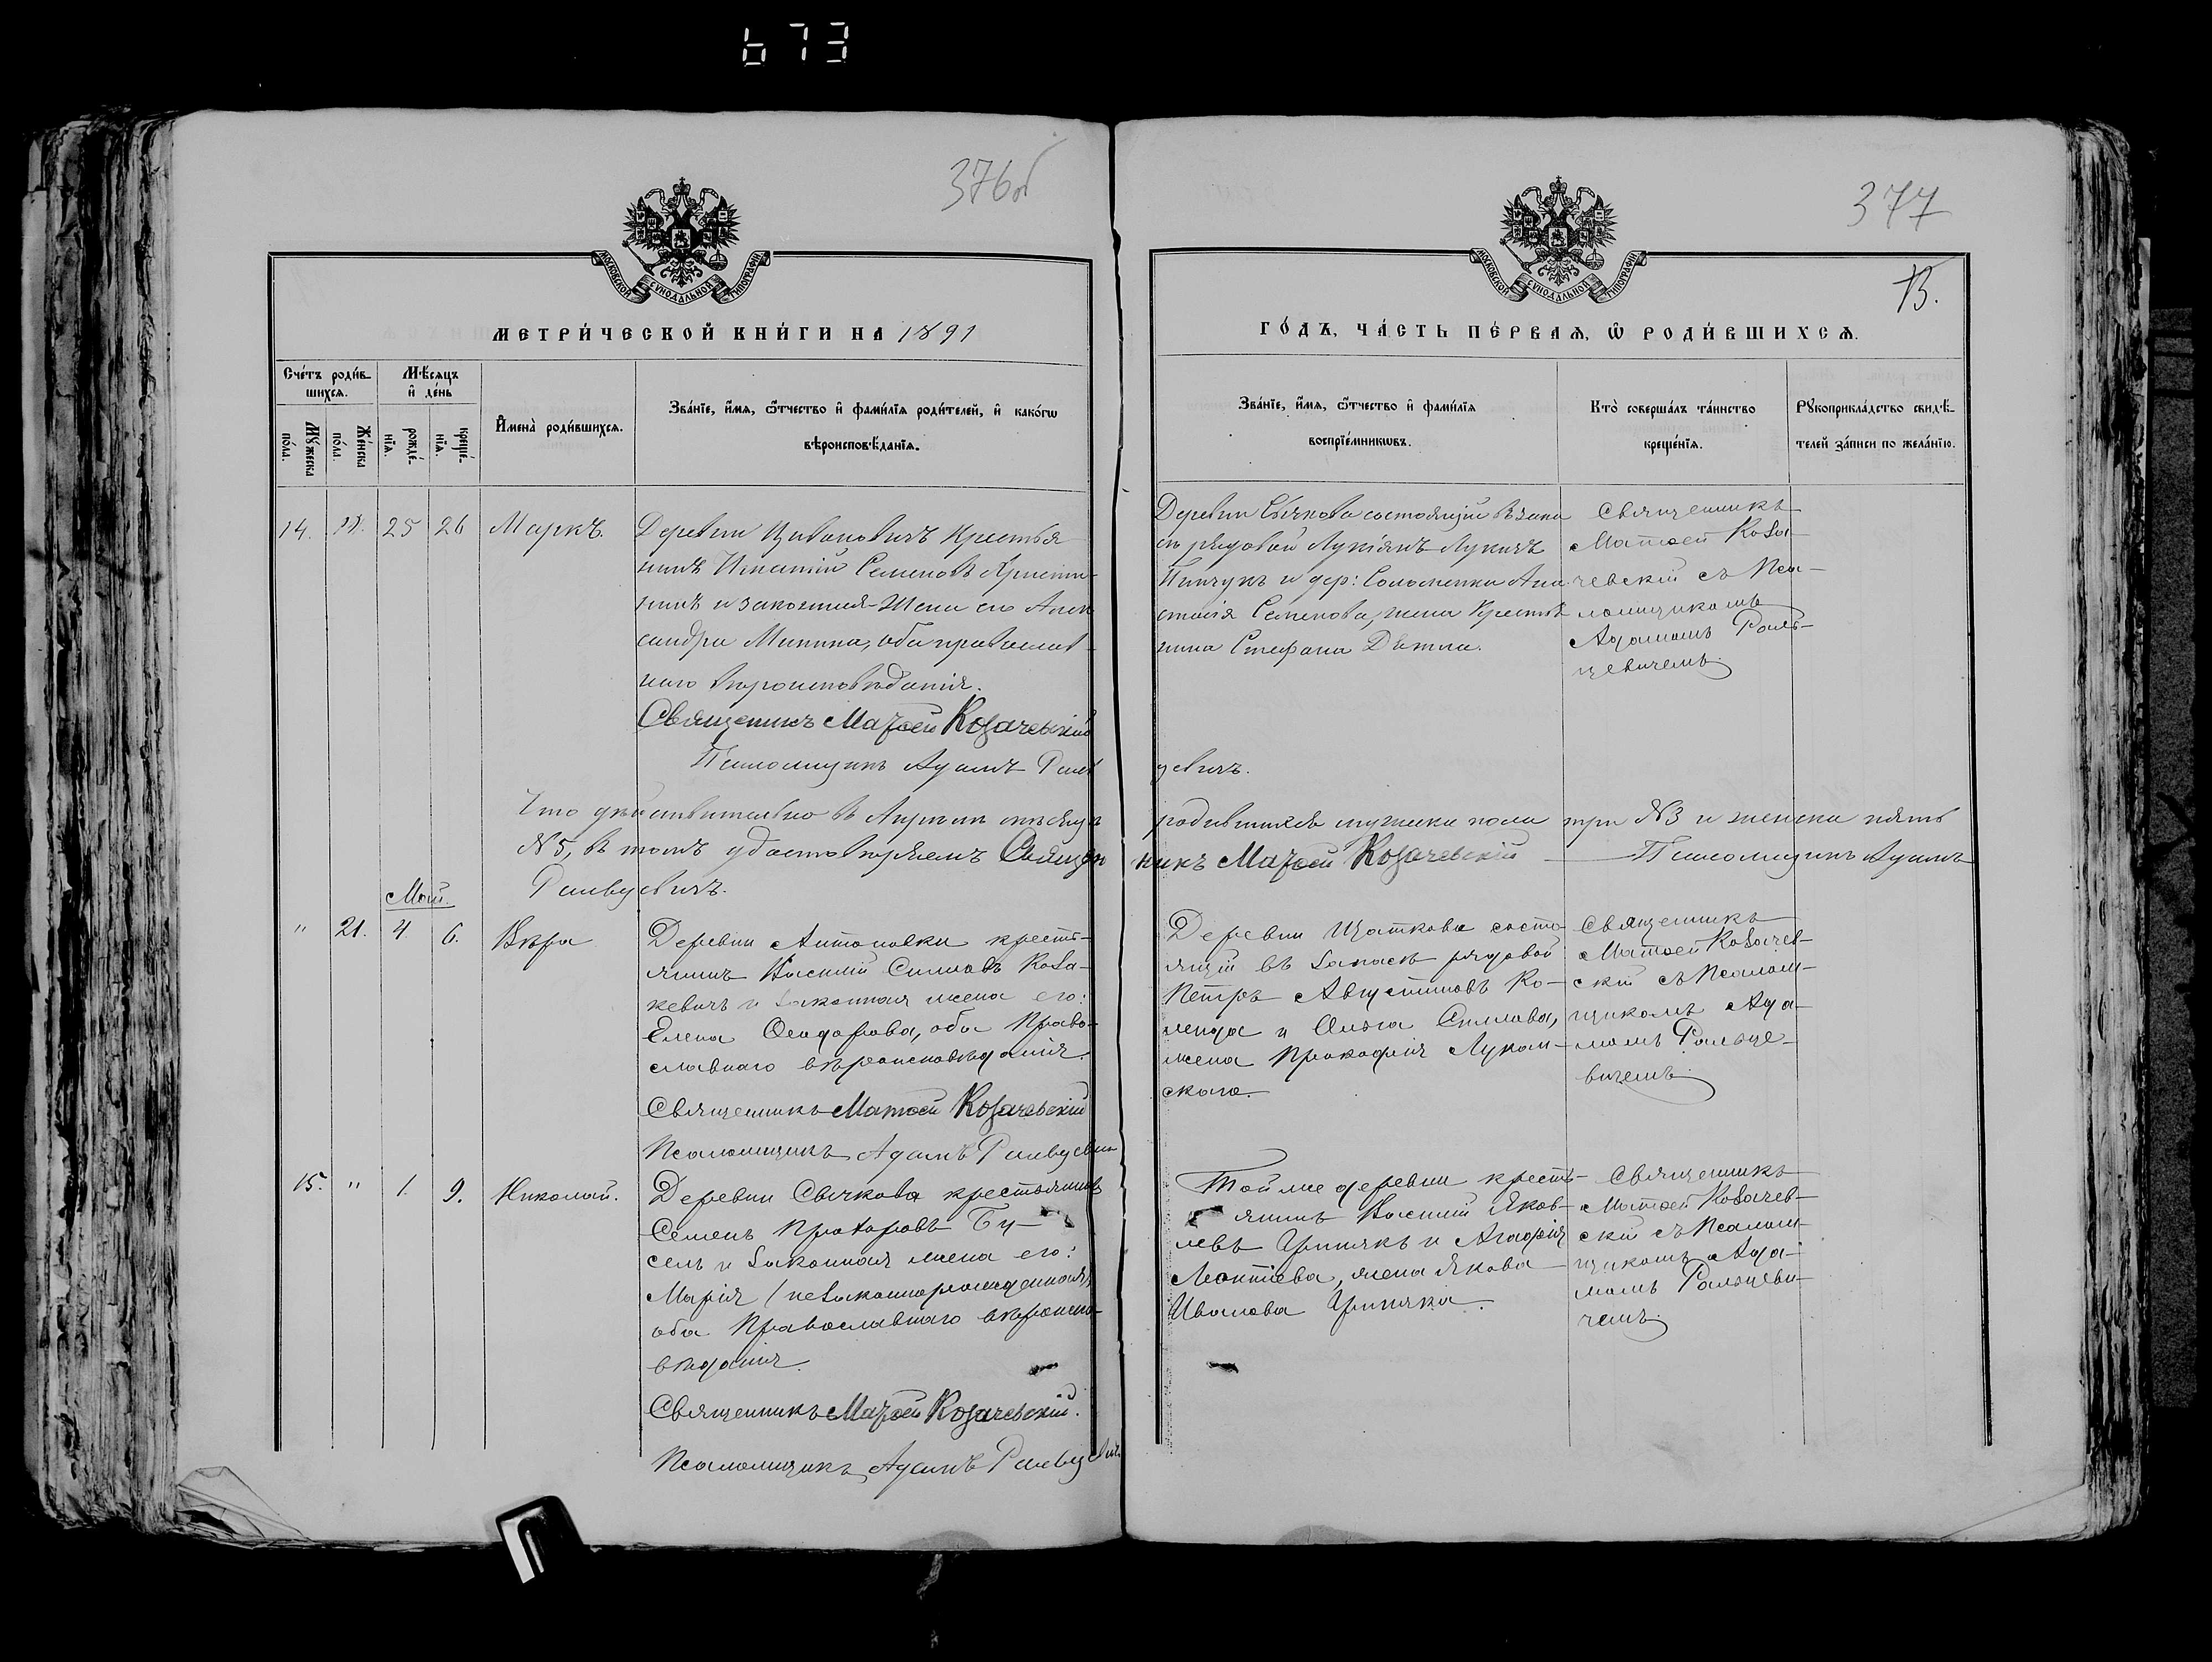 673
376об
377
13.
МОСКОВСКОЙ СѴНОДАЛЬНОЙ ТИПОГРАФІИ
МОСКОВСКОЙ СѴНОДАЛЬНОЙ ТИПОГРАФІИ
МЕТРИ́ЧЕСКОЙ КНИ́ГИ НА 1891
ГО́ДЪ, ЧА́СТЬ ПЕ́РВАѦ, Ѡ҆ РОДИ́ВШИХСѦ.
Сче́тъ роди́в-
шихсѧ.
Мѣ́сѧцъ
и҆ де́нь
Мꙋ́жеска
по́ла.
Же́нска
по́ла.
рожде́-
нїѧ.
креще́-
нїѧ.
И҆мена̀ роди́вшихсѧ.
Зва́нїе, и҆́мѧ, ѻ҆́тчество и҆ фами́лїѧ роди́телей, и҆ како́гѡ
вѣроисповѣ́данїѧ.
Зва́нїе, и҆́мѧ, ѻ҆́тчество и҆ фами́лїѧ
воспрїе́мникѡвъ.
Кто̀ соверша́лъ та́инство
креще́нїѧ.
Рꙋкоприкла́дство свидѣ́-
телей за́писи по жела́нїю.
14. 25 26 Маркъ.
Деревни Цивановичъ Крестья
нинъ Игнатій Семеновъ
и законная Жена его Алек
сандра Минина, оба православ-
наго вѣроисповѣданія.
Священикъ Матѳей Козачевскій
Псаломщикъ Адамъ
Деревни Сычкова состоящій въ запа
сѣ рядовой Лукіянъ Лукичъ
Пинчукъ и дер: Соломенки Ана
стасія Семенова, жена Крестья
нина Стефана
Священникъ
Матѳей Коза-
чевскій съ Пса-
ломщикомъ
Адамомъ Раль-
цевичемъ
цевичъ.
Что дѣйствительно въ Апрѣлѣ мѣсяцѣ родившихся мужеска пола три №3 и женска пять
№5, въ томъ удостовѣряемъ Священникъ Матѳей Козачевскій Псаломщикъ Адамъ
Ральцевичъ.
Май.
" 21. 4. 6. Вѣра
Деревни Антоновки кресть-
янинъ Василій Симовъ Коза-
кевичъ и законная жена его:
Елена Ѳеодорова, оба Право-
славнаго вѣроисповѣданія.
Священникъ Матѳей Козачевскій
Псаломщикъ Адамъ Ральцевичъ
Деревни Щаткова состо-
ящій въ запасѣ рядовой
Петръ Августиновъ Ко-
ленда и Ольга Симова,
жена Прокофія Луком-
скаго.
Священникъ
Матѳей Козачев-
скій съ Псалом-
щикомъ Ада-
момъ Ральце-
вичемъ
15. " 1. 9. Николай.
Деревни Сычкова крестьянинъ
Семенъ Прохоровъ Бу-
селъ и законная жена его:
Марія (незаконнорожденная)
оба Православнаго вѣроиспо-
вѣданія.
Священникъ Матѳей Козачевскій.
Псаломщикъ Адамъ Ральцевичъ
Той же деревни кресть-
янинъ Василій Яков-
левъ Гринякъ и Агафія
Леонтіева, жена Якова
Иванова Гриняка.
Священникъ
Матѳей Козачев-
скій съ Псалом-
щикомъ Ада-
момъ Ральцеви-
чемъ